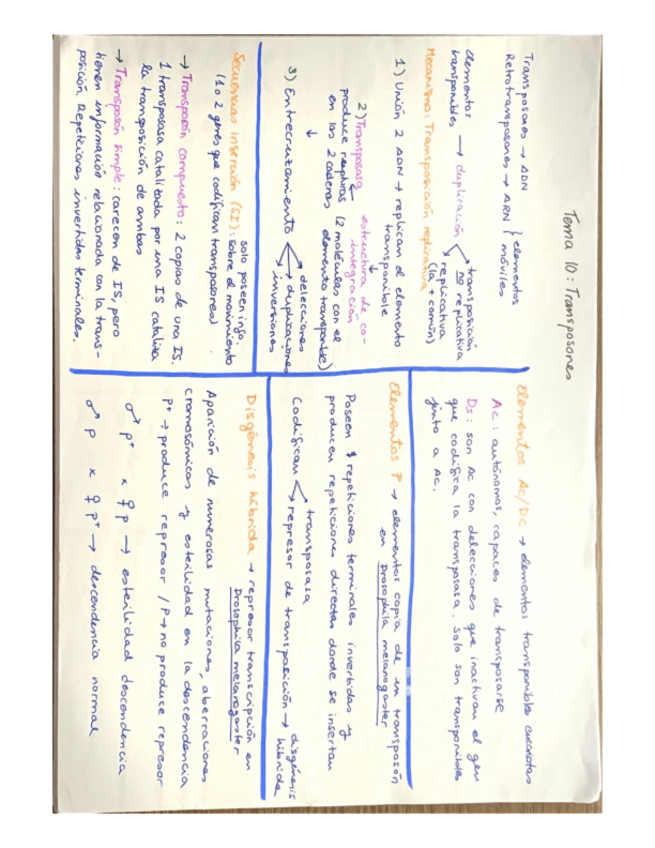 Tema 10: Transposones
Transposones → ADN } elementos
Retrotransposones → ARN } móviles
elementos transponibles → duplicación
transposición no replicativa
replicativa (la + común)
Mecanismo: Transposición replicativa
1) Unión 2 ADN → replican el elemento
transponible
↓
2) Transposasa
produce rupturas
en las 2 cadenas
estructura de co-
integración
(2 moléculas con el
elemento transponible)
↓
3) Entrecruzamiento
delecciones
duplicaciones
inversiones
Secuencias inserción (SI): solo poseen info.
sobre el movimiento
(1 o 2 genes que codifican transposones)
→ Transposón compuesto: 2 copias de una IS.
1 transposasa catalizada por una IS cataliza
la transposición de ambas
→ Transposón simple: carecen de IS, pero
tienen información relacionada con la trans-
posición. Repeticiones invertidas terminales.
Elementos Ac/DC → elementos transponibles eucariotas
Ac: autónomos, capaces de transposarse
Ds: son Ac con delecciones que inactivan el gen
que codifica la transposasa. Solo son transponibles
junto a Ac.
Elementos P → elementos copia de un transposón
en Drosophila melanogaster
Poseen repeticiones terminales invertidas y
producen repeticiones directas donde se insertan
Codifican
transposasa
represor de transposición → disgénesis
híbrida
Disgénesis híbrida → represor transcripción en
Drosophila melanogaster
Aparición de numerosas mutaciones, aberraciones
cromosómicas y esterilidad en la descendencia
P⁺ → produce represor / P → no produce represor
♂ P⁺ x ♀ P → esterilidad descendencia
♂ P x ♀ P⁺ → descendencia normal